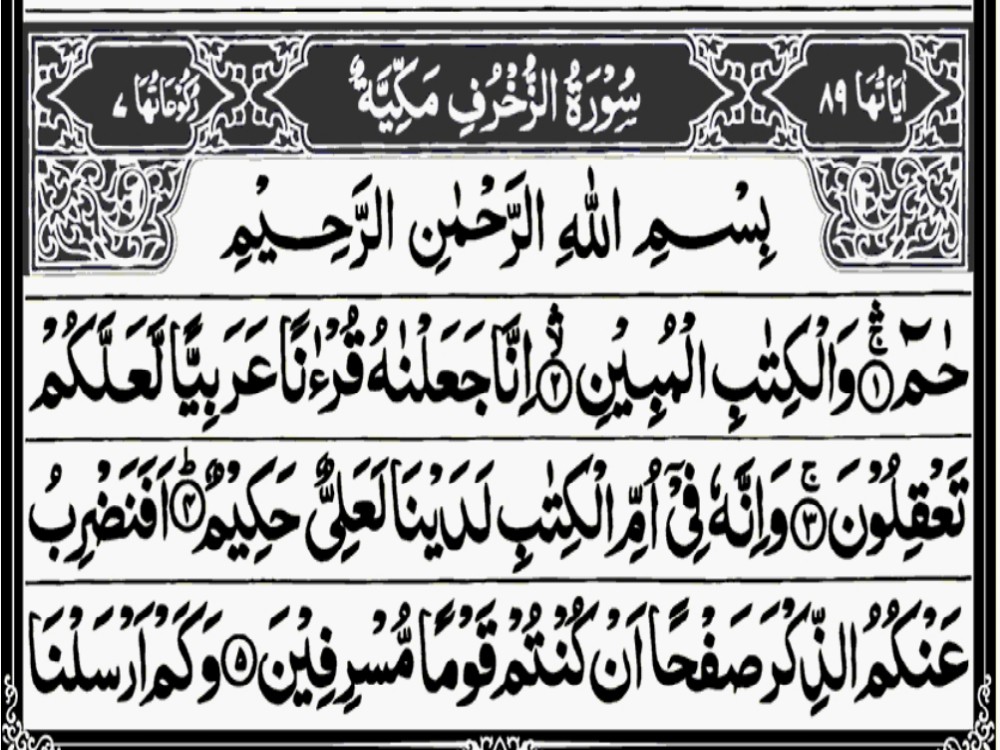 اٰيَاتُهَا ٨٩ سُوْرَةُ الزُّخْرُفِ مَكِّيَّةٌ رُكُوْعَاتُهَا ٧
بِسْمِ اللّٰهِ الرَّحْمٰنِ الرَّحِيْمِ
حٰمٓ ۚۛ ﴿١﴾ وَالْكِتٰبِ الْمُبِيْنِ ۙۛ ﴿٢﴾ اِنَّا جَعَلْنٰهُ قُرْءٰنًا عَرَبِيًّا لَّعَلَّكُمْ
تَعْقِلُوْنَ ۚ ﴿٣﴾ وَاِنَّهٗ فِيْۤ اُمِّ الْكِتٰبِ لَدَيْنَا لَعَلِيٌّ حَكِيْمٌ ؕ ﴿۴﴾ اَفَنَضْرِبُ
عَنْكُمُ الذِّكْرَ صَفْحًا اَنْ كُنْتُمْ قَوْمًا مُّسْرِفِيْنَ ﴿۵﴾ وَكَمْ اَرْسَلْنَا